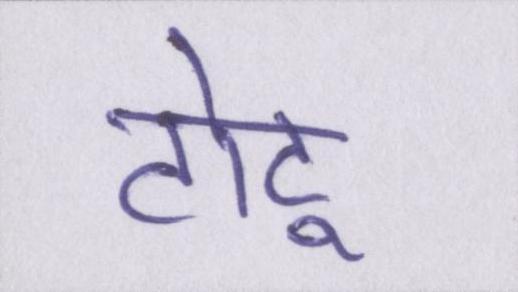 टोटू